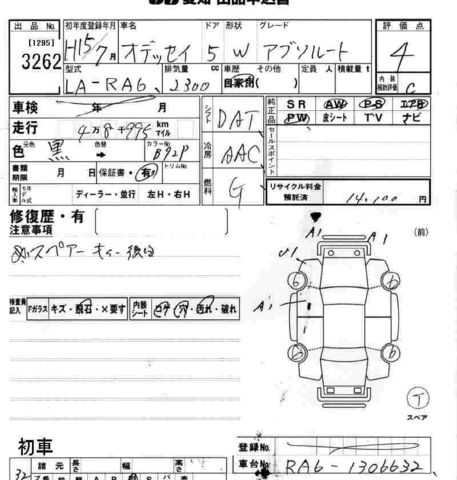 出品No. 初年度登録年月 車名 ドア 形状 グレード 評価点
[1285] 3262 H15/7月 オデッセイ 5 W アブソルート 4
型式 排気量 cc 車歴 その他 定員 人 積載量 t 内装補助評価 C
LA-RA6 2300 自家用( )
車検 年 月 シフト DAT 純正品 SR AW PS エアB
走行 4万8千995 km マイル PW 皮シート TV ナビ
色 元色 黒 色替 カラーNo. B92P 冷房 AAC セールスポイント
書類期限 月 日 保証書・有 トリムNo. 燃料 G
輸入車 モデル年式 年 ディーラー・並行 左H・右H リサイクル料金預託済 14,100 円
修復歴・有
注意事項
スペアーキー後日
A1 A1 (前)
検査員記入 Fガラス キズ・飛石・×要す 内装シート コゲ・穴・汚れ・破れ
6 6
6 6
T
スペア
初車
登録No.
車台No. RA6-1306632
諸元 長さ 幅 高さ